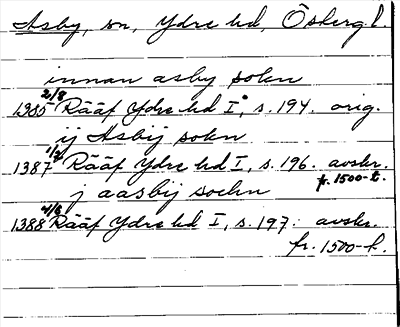 Asby, sn, Ydre hd, Östergl.
innan asby sokn
1385 2/8 Rääf Ydre hd I, s. 194. orig.
ij Asbij sokn
1387 1/2 Rääf Ydre hd I, s. 196. avskr. fr. 1500-t.
j aasbij sochn
1388 4/6 Rääf Ydre hd I, s. 197. avskr.
fr. 1500-t.